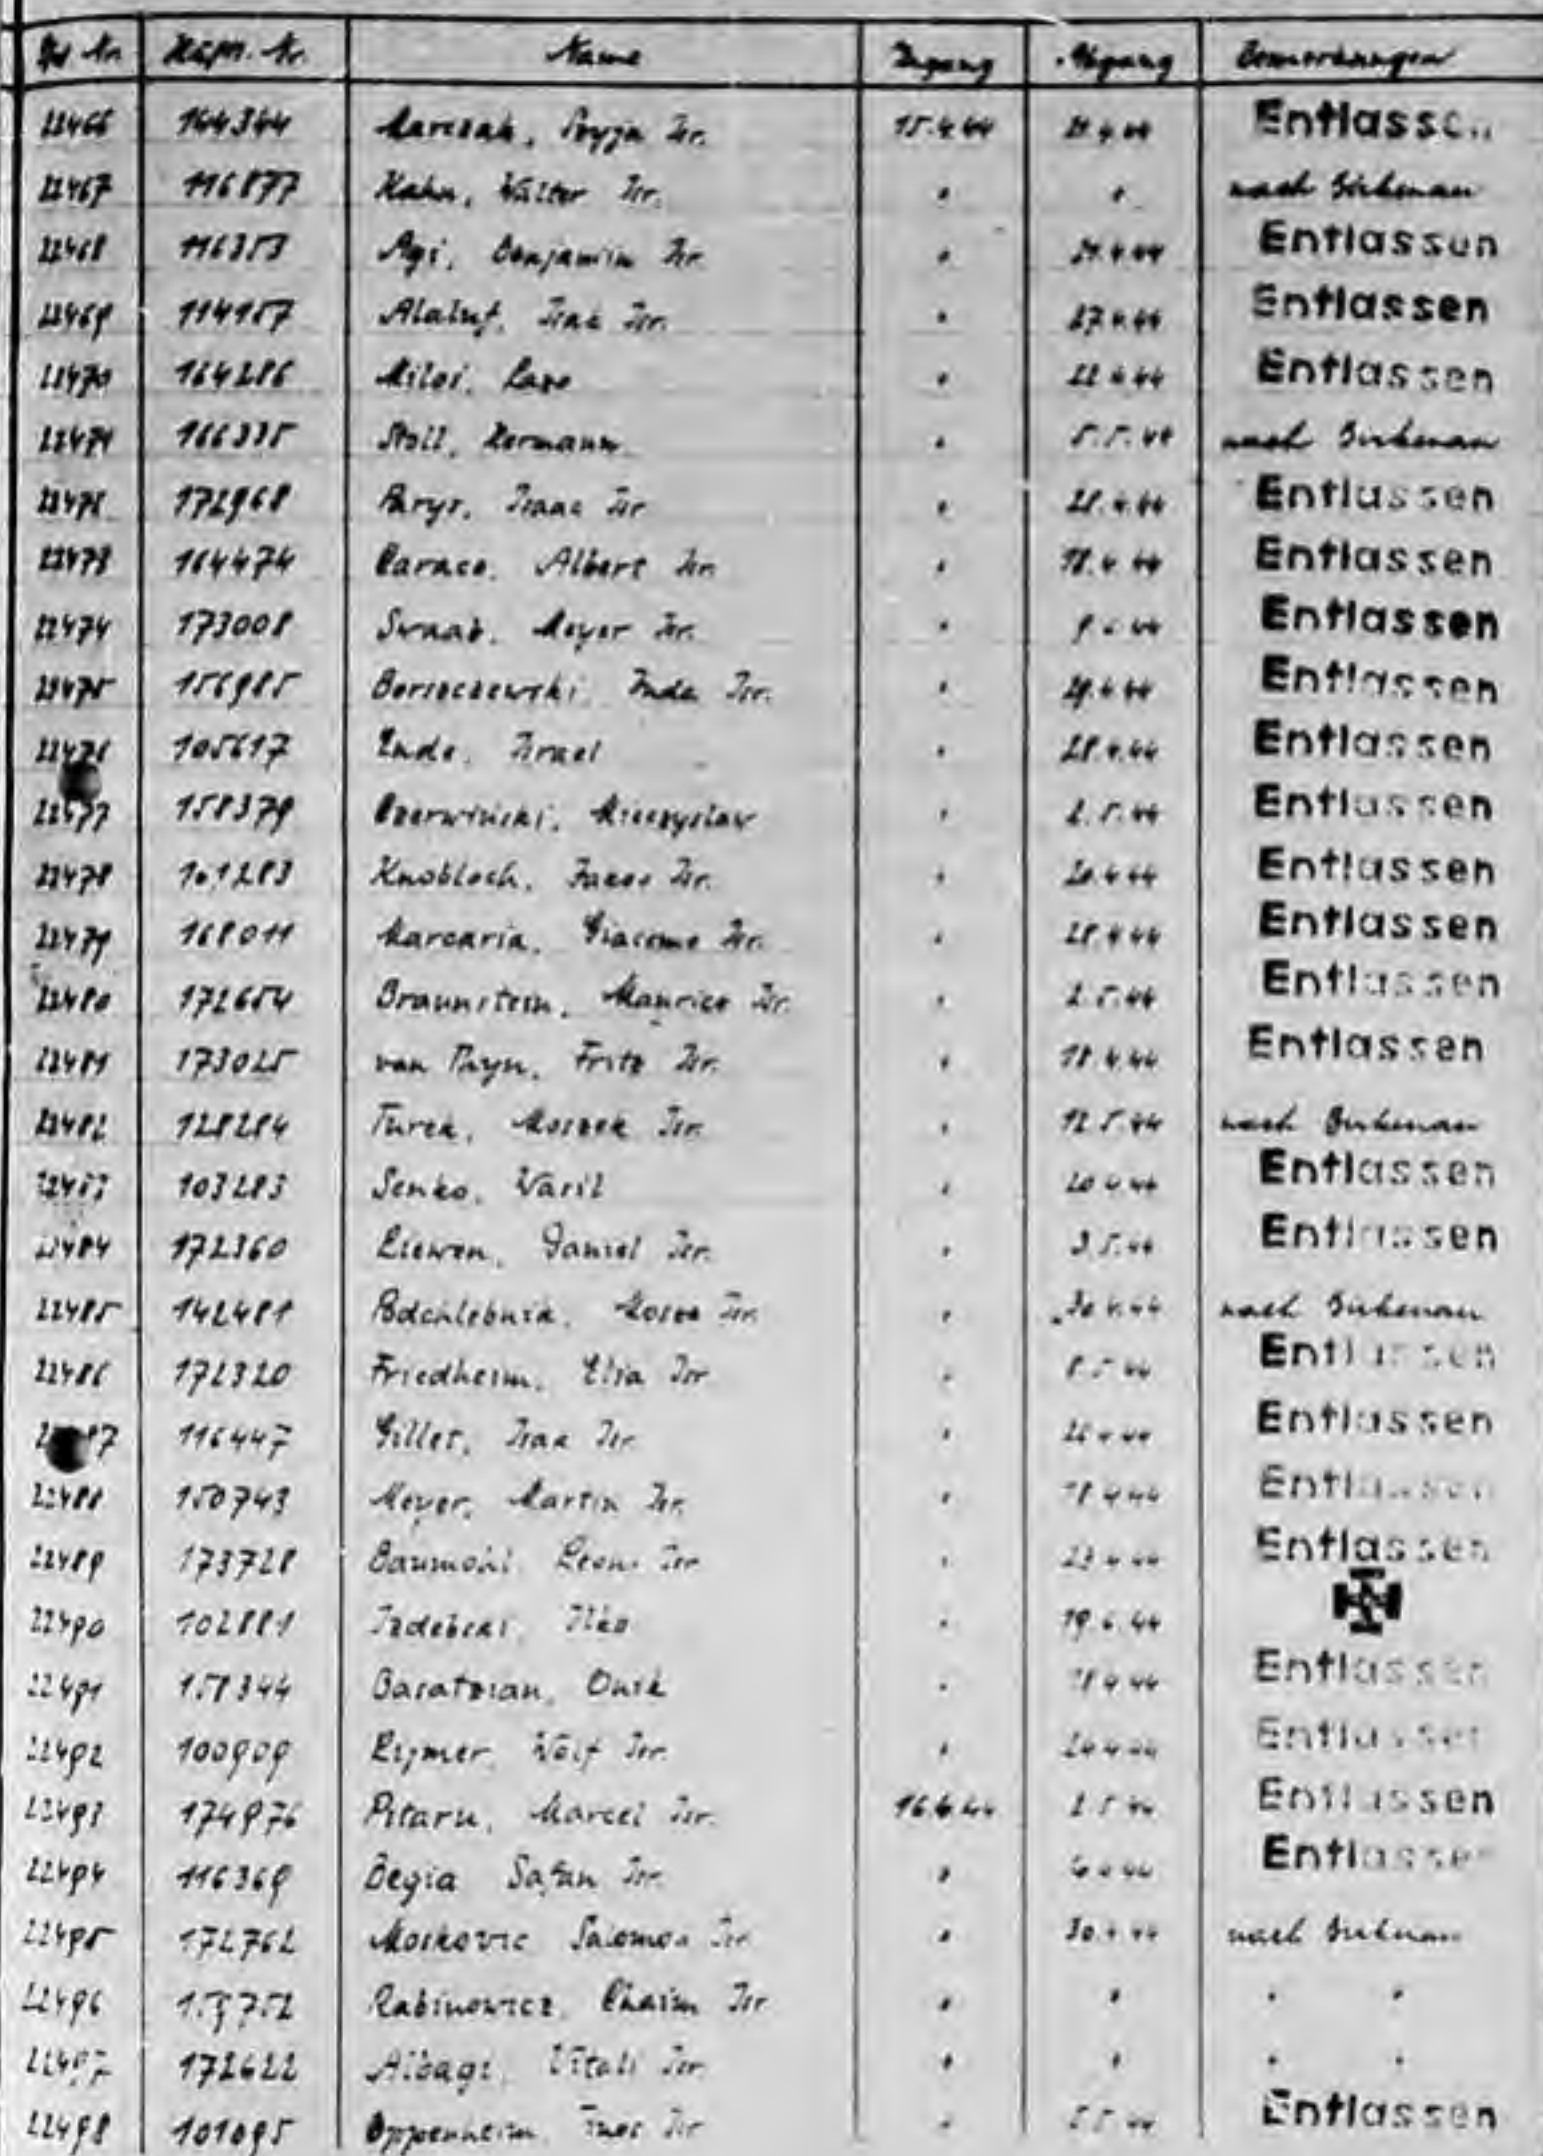 Lfd Nr. Häftl. Nr. Name Zugang Abgang Bemerkungen
22466 164344 Marczak, Isr. 15.4.44 Entlassen
22467 116877 Kahn, Walter Isr. " " nach Birkenau
22468 116353 Agi, Benjamin Isr. " Entlassen
22469 114157 Alaluf, Isak Isr. " 27.4.44 Entlassen
22470 164286 Milos, " 22.4.44 Entlassen
22471 166335 Stoll, Hermann " 5.5.44 nach Birkenau
22472 172968 Parys, Isaac Isr. " 28.4.44 Entlassen
22473 164474 Caraco, Albert Isr. " 18.4.44 Entlassen
22474 173008 Swaab, Meyer Isr. " Entlassen
22475 156985 Juda Isr. " 29.4.44 Entlassen
22476 105617 Israel " 28.4.44 Entlassen
22477 158379 Czerwinski, Mieczyslaw " 2.5.44 Entlassen
22478 Knobloch, Isr. " 20.4.44 Entlassen
22479 168011 Marcaria, Giacomo Isr. " 28.4.44 Entlassen
22480 172654 Braunstein, Maurice Isr. " 2.5.44 Entlassen
22481 173025 van Thyn, Fritz Isr. " 18.4.44 Entlassen
22482 128284 Turek, Moszek Isr. " 12.5.44 nach Birkenau
22483 103283 Senko, Wasil " 20.4.44 Entlassen
22484 172360 Liewen, Daniel Isr. " 3.5.44 Entlassen
22485 142481 Podchlebnik, Isr. " 30.4.44 nach Birkenau
22486 172320 Friedheim, Elia Isr. " 8.5.44 Entlassen
116447 Gilles, Isak Isr. " Entlassen
22488 150743 Meyer, Martin Isr. " 18.4.44 Entlassen
22489 173728 Baumohl, Leon Isr. " 23.4.44 Entlassen
22490 102881 " 19.6.44
22491 158344 Onik " 18.4.44 Entlassen
22492 100909 Wolf Isr. " Entlassen
22493 174976 Pitaru, Marcel Isr. 16.4.44 2.5.44 Entlassen
22494 116369 Begia Isr. " Entlassen
22495 172762 Moskovic Salomon Isr. " 30.4.44 nach Birkenau
22496 Rabinowicz, Chaim Isr. " " " "
22497 172622 Albagi, Vitali Isr. " " " "
22498 101095 Oppenheim, Isr. " Entlassen